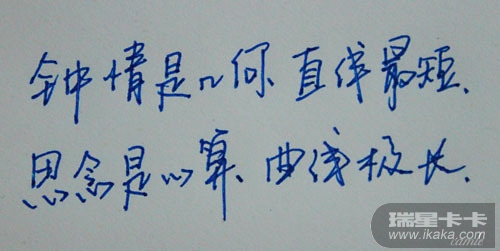 钟情是几何、直线最短、
思念是心算、曲线极长、
瑞星卡卡
www.ikaka.com